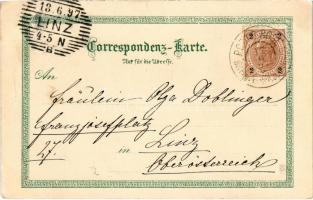 18.6.97
LINZ
4-5 N
Correspondenz-Karte.
Nur für die Adresse.
An
Fräulein Olga Doblinger
Franzjosefplatz
27.
in Linz
Oberösterreich